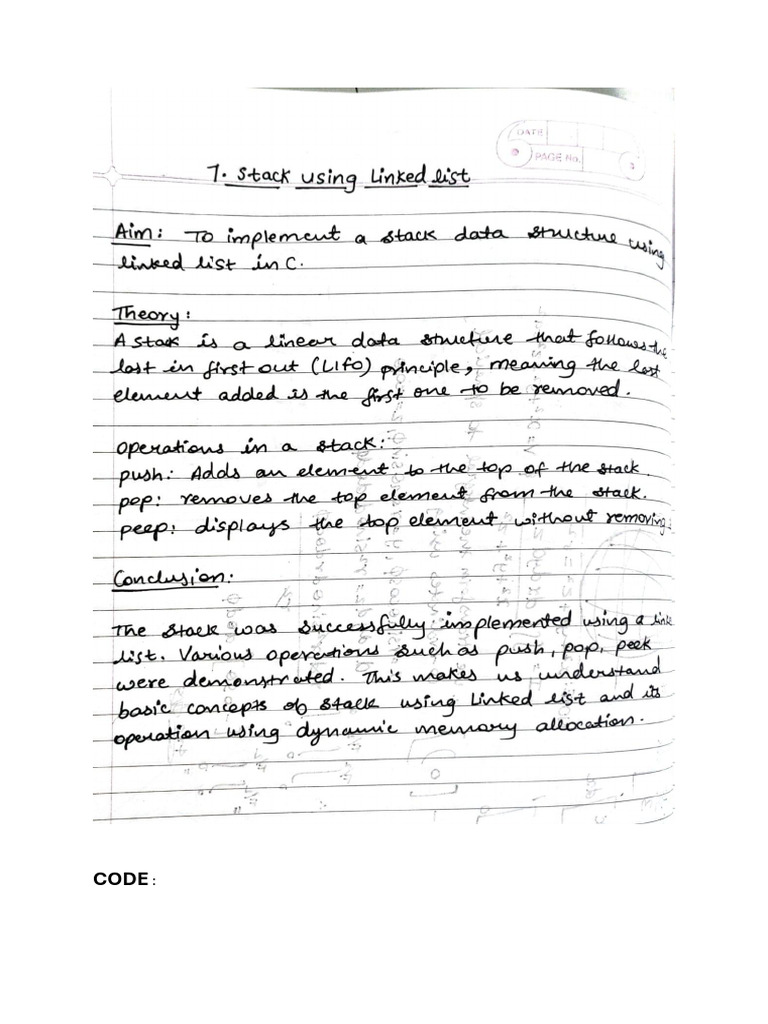 DATE
PAGE No.
7. Stack using Linked list
Aim: To implement a stack data structure using
linked list in C.
Theory:
A stak is a linear data structure that follows the
last in first out (LIFO) principle, meaning the last
element added is the first one to be removed.
Operations in a stack:
push: Adds an element to the top of the stack.
pop: removes the top element from the stack.
peep: displays the top element without removing.
Conclusion:
The stack was successfully implemented using a link
list. Various operations such as push, pop, peek
were demonstrated. This makes us understand
basic concepts of stack using Linked list and its
operation using dynamic memory allocation.
CODE: